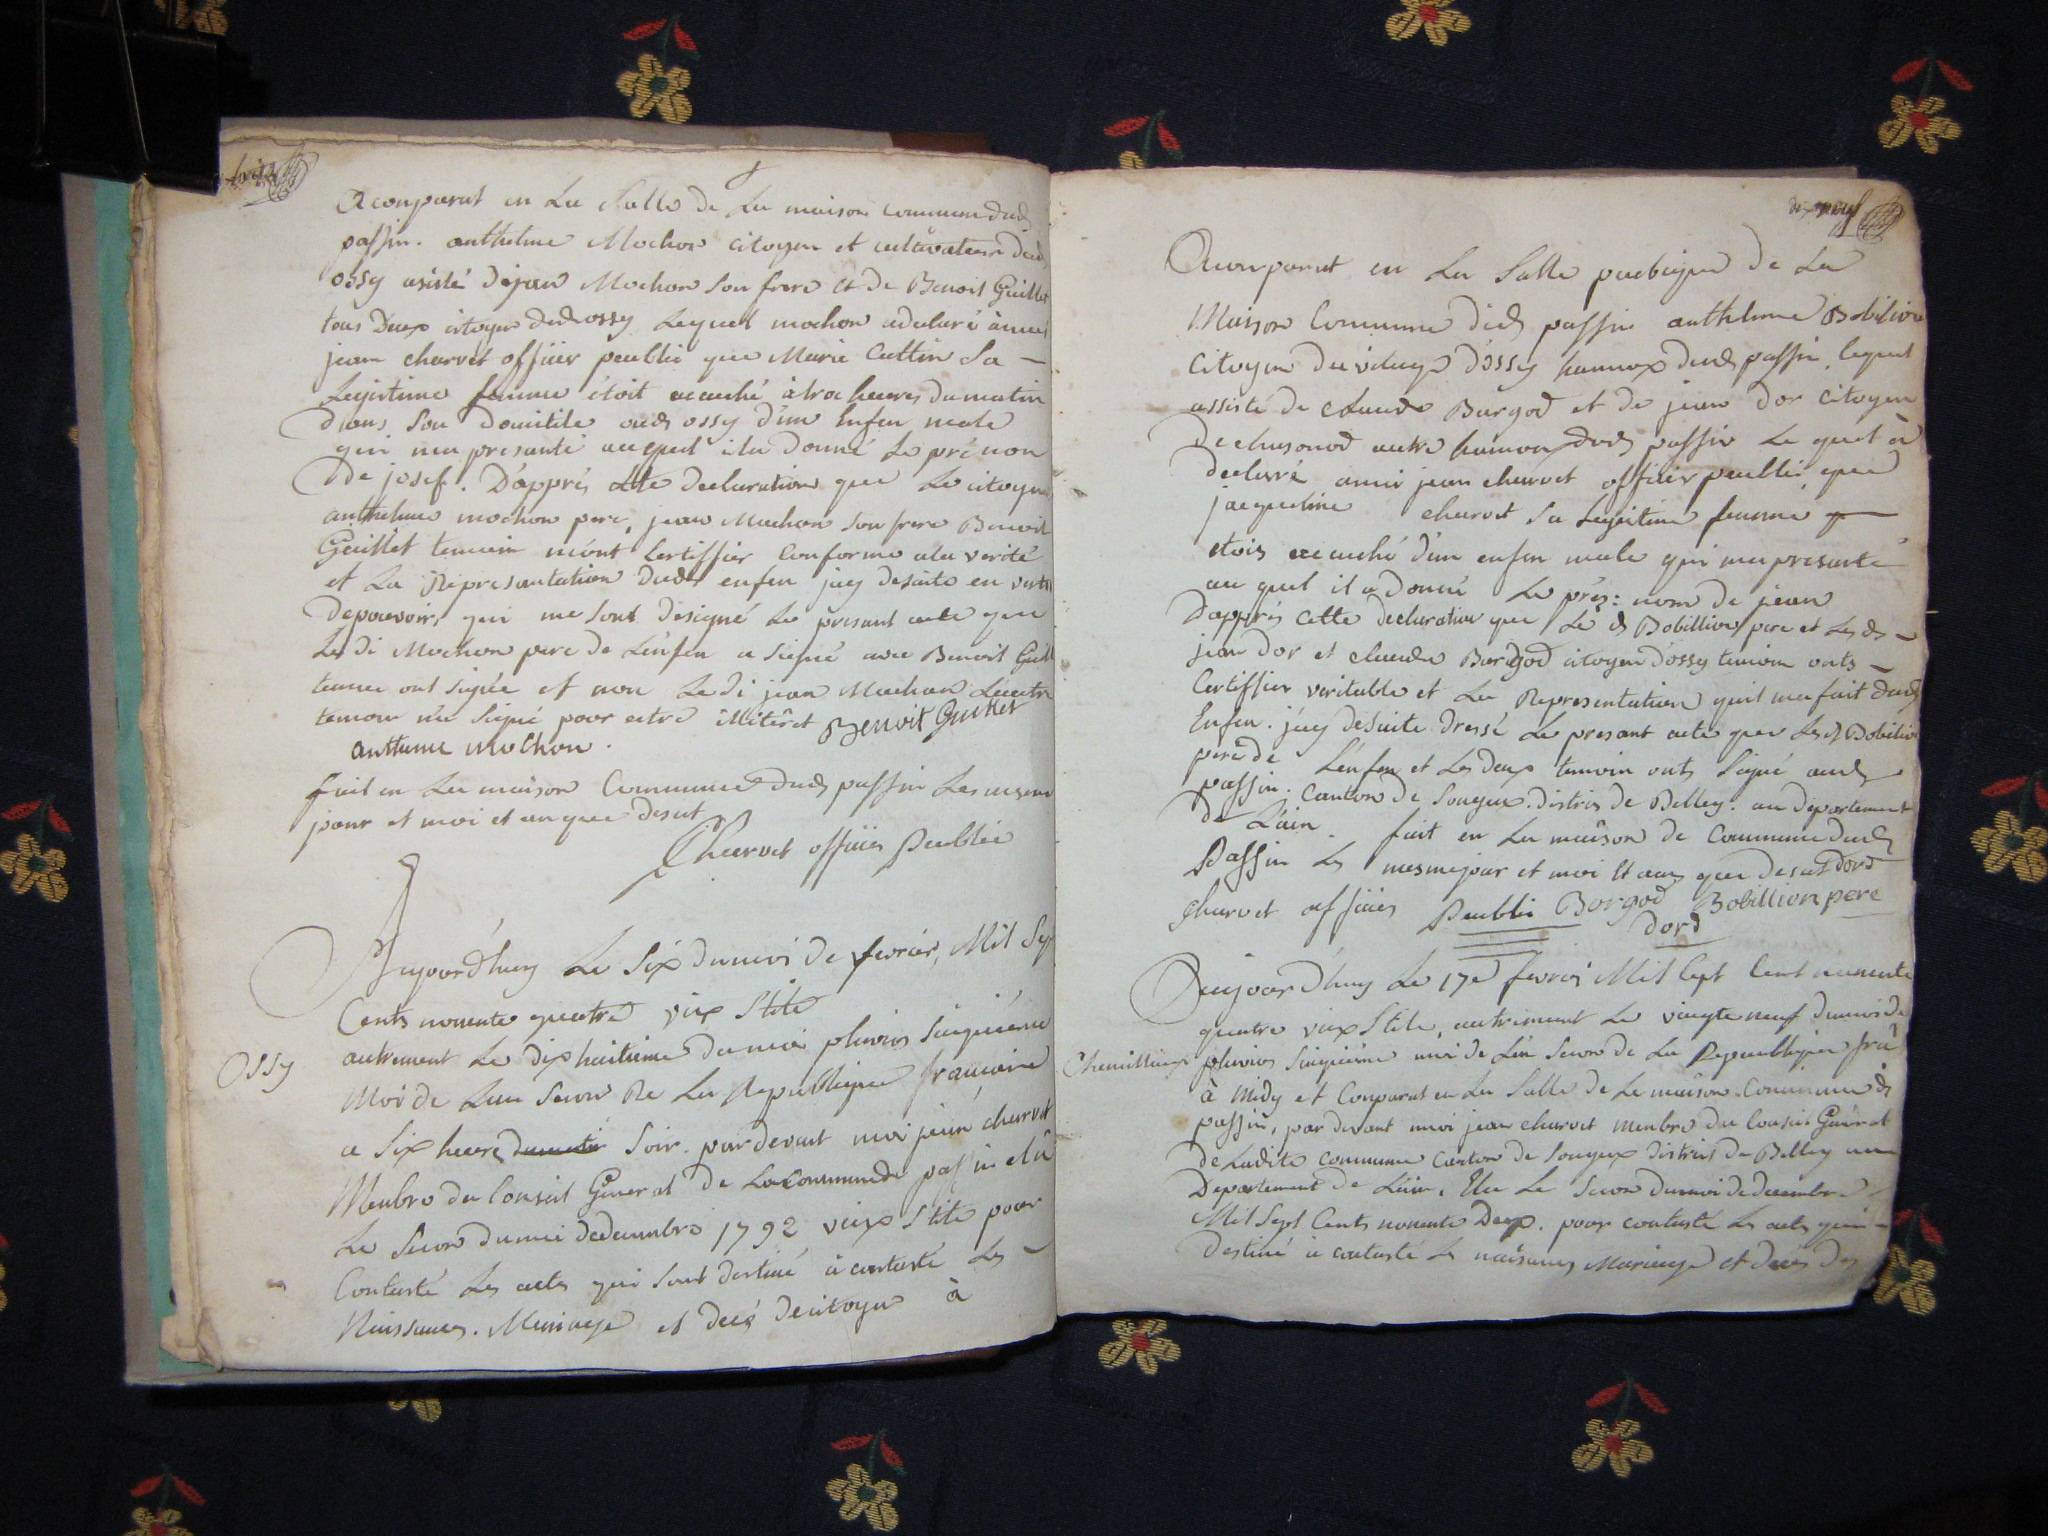 Et conparut en La Salle de La maison commun dud
passin. anthelme Mochon citoyen et cultivateur dud
ossy asisté de jean Mochon son frere et de Benoit Guillet
tous Deux citoyen dud ossy Lequel mochon a declaré à moi
jean charvet officier peublic que Marie Cattin Sa
Legistime femme étoit acauché à troi heures du matin
dans Son domicile aud ossy d'un Enfen male
qui ma presanté auquel il a donné Le prénon
de josef. D'apprés cette declaration que Le citoyen
anthelme mochon pere, jean Mochon son frere Benoit
Guillet temoin m'ont Certiffier Conforme a la verité
et La Représantation dudi enfen jay desuite en vertu
depouvoir, qui me sont designé Le présant acte que
Ledi Mochon pere de L'énfen a signé avec Benoit Guillet
temoin ont signée et non Ledi jean Mochon L'autre
temoin n'a Signé pour estre illitéret Benoit Guillet
anttume mochon.
fait en La maison Commune dud passin Les mesme
jour et moi et an que desut
Charvet officier Peublic
Aujourd'huy Le Six du moi de fevrier, Mil Sept
Cents nonente quatre vieux Stile
Ossy
autrement Le dix huitieme du moi pluvios Sinquiéme
Moi de Lan Secon de La Republique francoise
a Six heure du matin Soir. par devant moi jean charvet
Menbre du Conseil Géneral de La commune de passin elû
Le Secon du moi de decembre 1792 vieux Stile pour
Contasté Les actes qui sont destiné à contasté Les
Naissances. Mariage et decés de citoyen à
dix neuf
Conparut en La Salle peublique de La
Maison Commune dud passin anthelme Bobilion
Citoyen du vilage d'ossy hamaux dud passin, lequel
assisté de claude Burgod et de jean dor citoyen
de chasonod autre hamau dud passin Le quel à
declaré a moi jean charvet officier peublic que
jacqueline charvet Sa Legistime femme
etois acauché d'un enfen male qui ma presanté
au quel il a donné Le prés: nom de jean
D'apprés cette declaration que Le d Bobillion pere et Les d
jean dor et claude Burgod citoyen d'ossy temoin onts
Certiffier veritable et La Representation qu'il ma fait dud
Enfen. jay desuite dressé Le presant acte que Le d Bobilion
pere de L'énfen et Les deux temoin onts Signé aud
passin. Canton de Songeux. distris de Belley. au departement
de L'ain. fait en La maison de Commune dud
Passin Les mesme jour et moi et an que desut Dord
Charvet officier Peublic Borgod Bobillion pere
dord
Aujourd'huy Le 17e fevroi Mil Sept Cent nonente
quatre vieux Stile, autrement Le vingte neuf du mois de
Chemillieux
pluvios Sinquiéme moi de L'an Secon de La Republique frâ
à Midy et Conparut en La Salle de Le maison Commune d
passin, par devant moi jean charvet menbre du Conseil Général
de Ladite commune Canton de Songeux distris de Belley
Departement de L'ain. Elu Le Secon du moi de decembre
Mil Sept Cents nonente Deux. pour contasté Les acte qui
destiné à contasté Les naisances Mariage et decés des